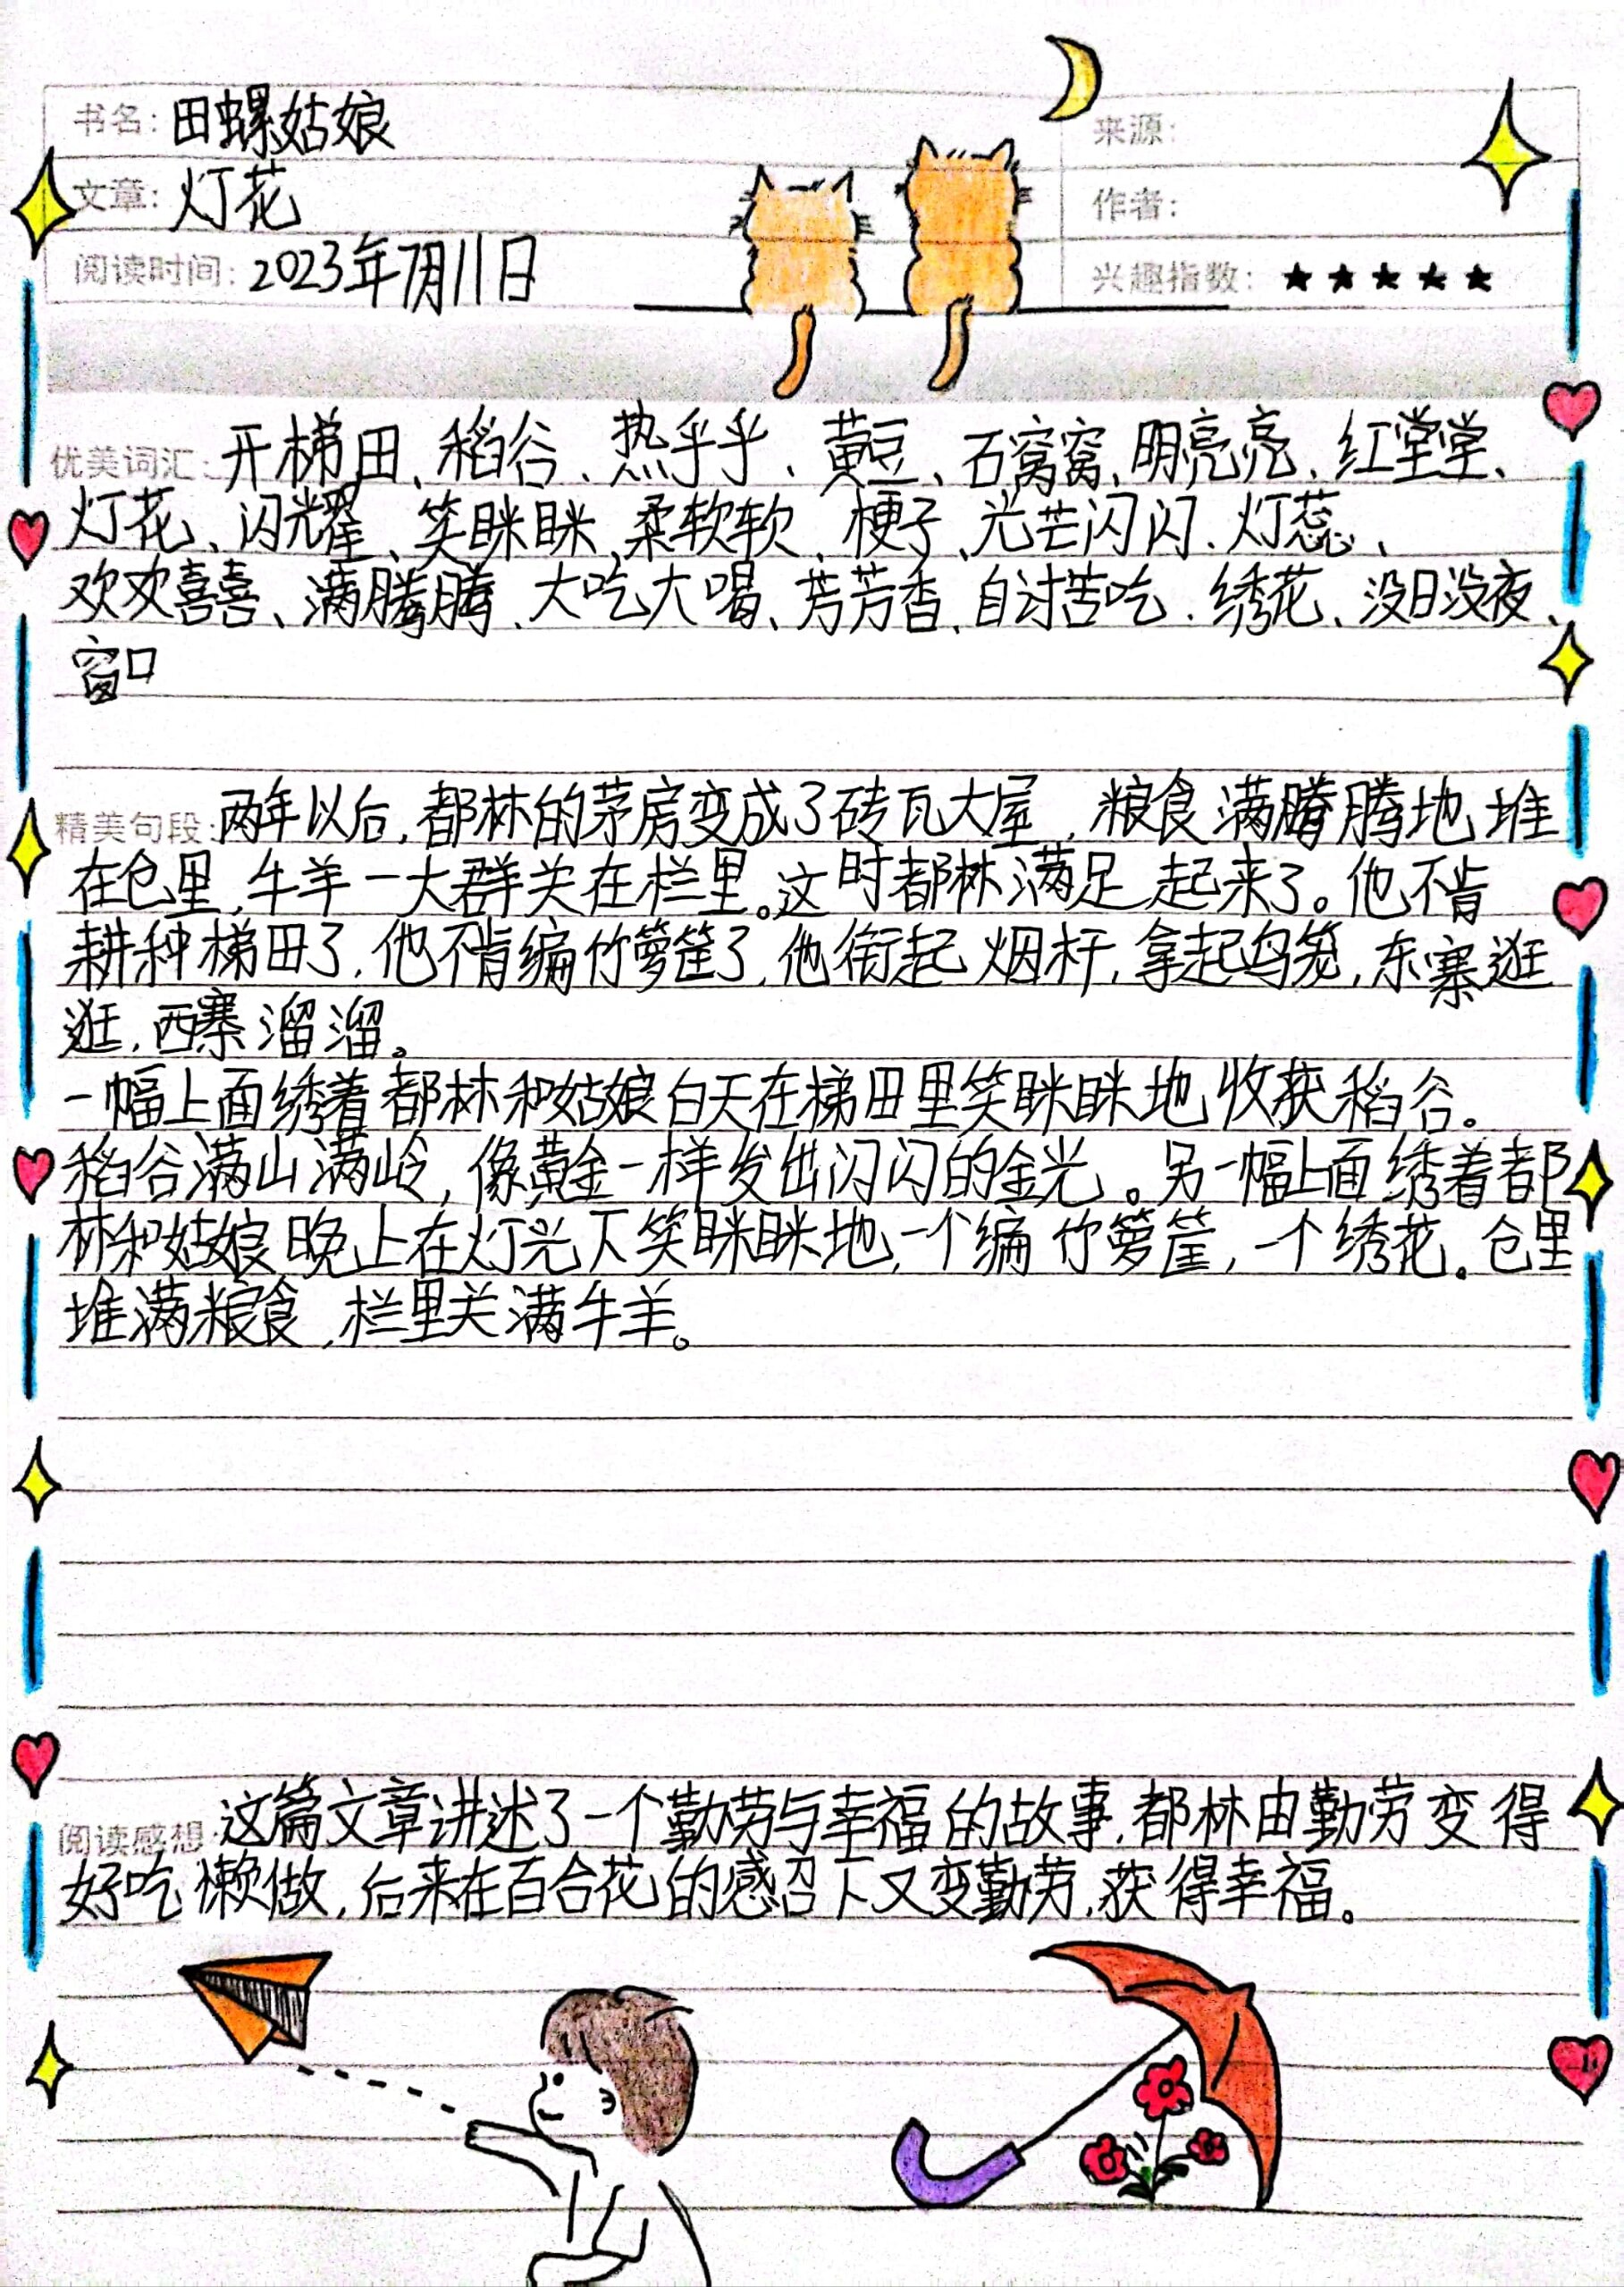 书名：田螺姑娘
来源：
文章：灯花
作者：
阅读时间：2023年7月11日
兴趣指数：★★★★★
优美词汇：开梯田、稻谷、热乎乎、黄豆、石窝窝、明亮亮、红堂堂、
灯花、闪耀、笑眯眯、柔软软、梗子、光芒闪闪、灯蕊、
欢欢喜喜、满腾腾、大吃大喝、芳芳香、自讨苦吃、绣花、没日没夜、
窗口
精美句段：两年以后，都林的茅房变成了砖瓦大屋，粮食满腾腾地堆
在仓里，牛羊一大群关在栏里。这时都林满足起来了。他不肯
耕种梯田了，他不肯编竹箩筐了，他衔起烟杆，拿起鸟笼，东寨逛
逛，西寨溜溜。
一幅上面绣着都林和姑娘白天在梯田里笑眯眯地收获稻谷。
稻谷满山满岭，像黄金一样发出闪闪的金光。另一幅上面绣着都
林和姑娘晚上在灯光下笑眯眯地，一个编竹箩筐，一个绣花。仓里
堆满粮食，栏里关满牛羊。
阅读感想：这篇文章讲述了一个勤劳与幸福的故事，都林由勤劳变得
好吃懒做，后来在百合花的感召下又变勤劳，获得幸福。